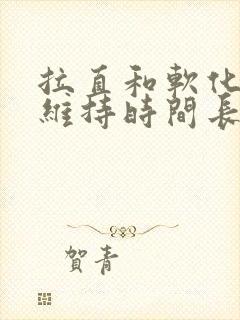 拉直和軟化
維持時間長
賀青